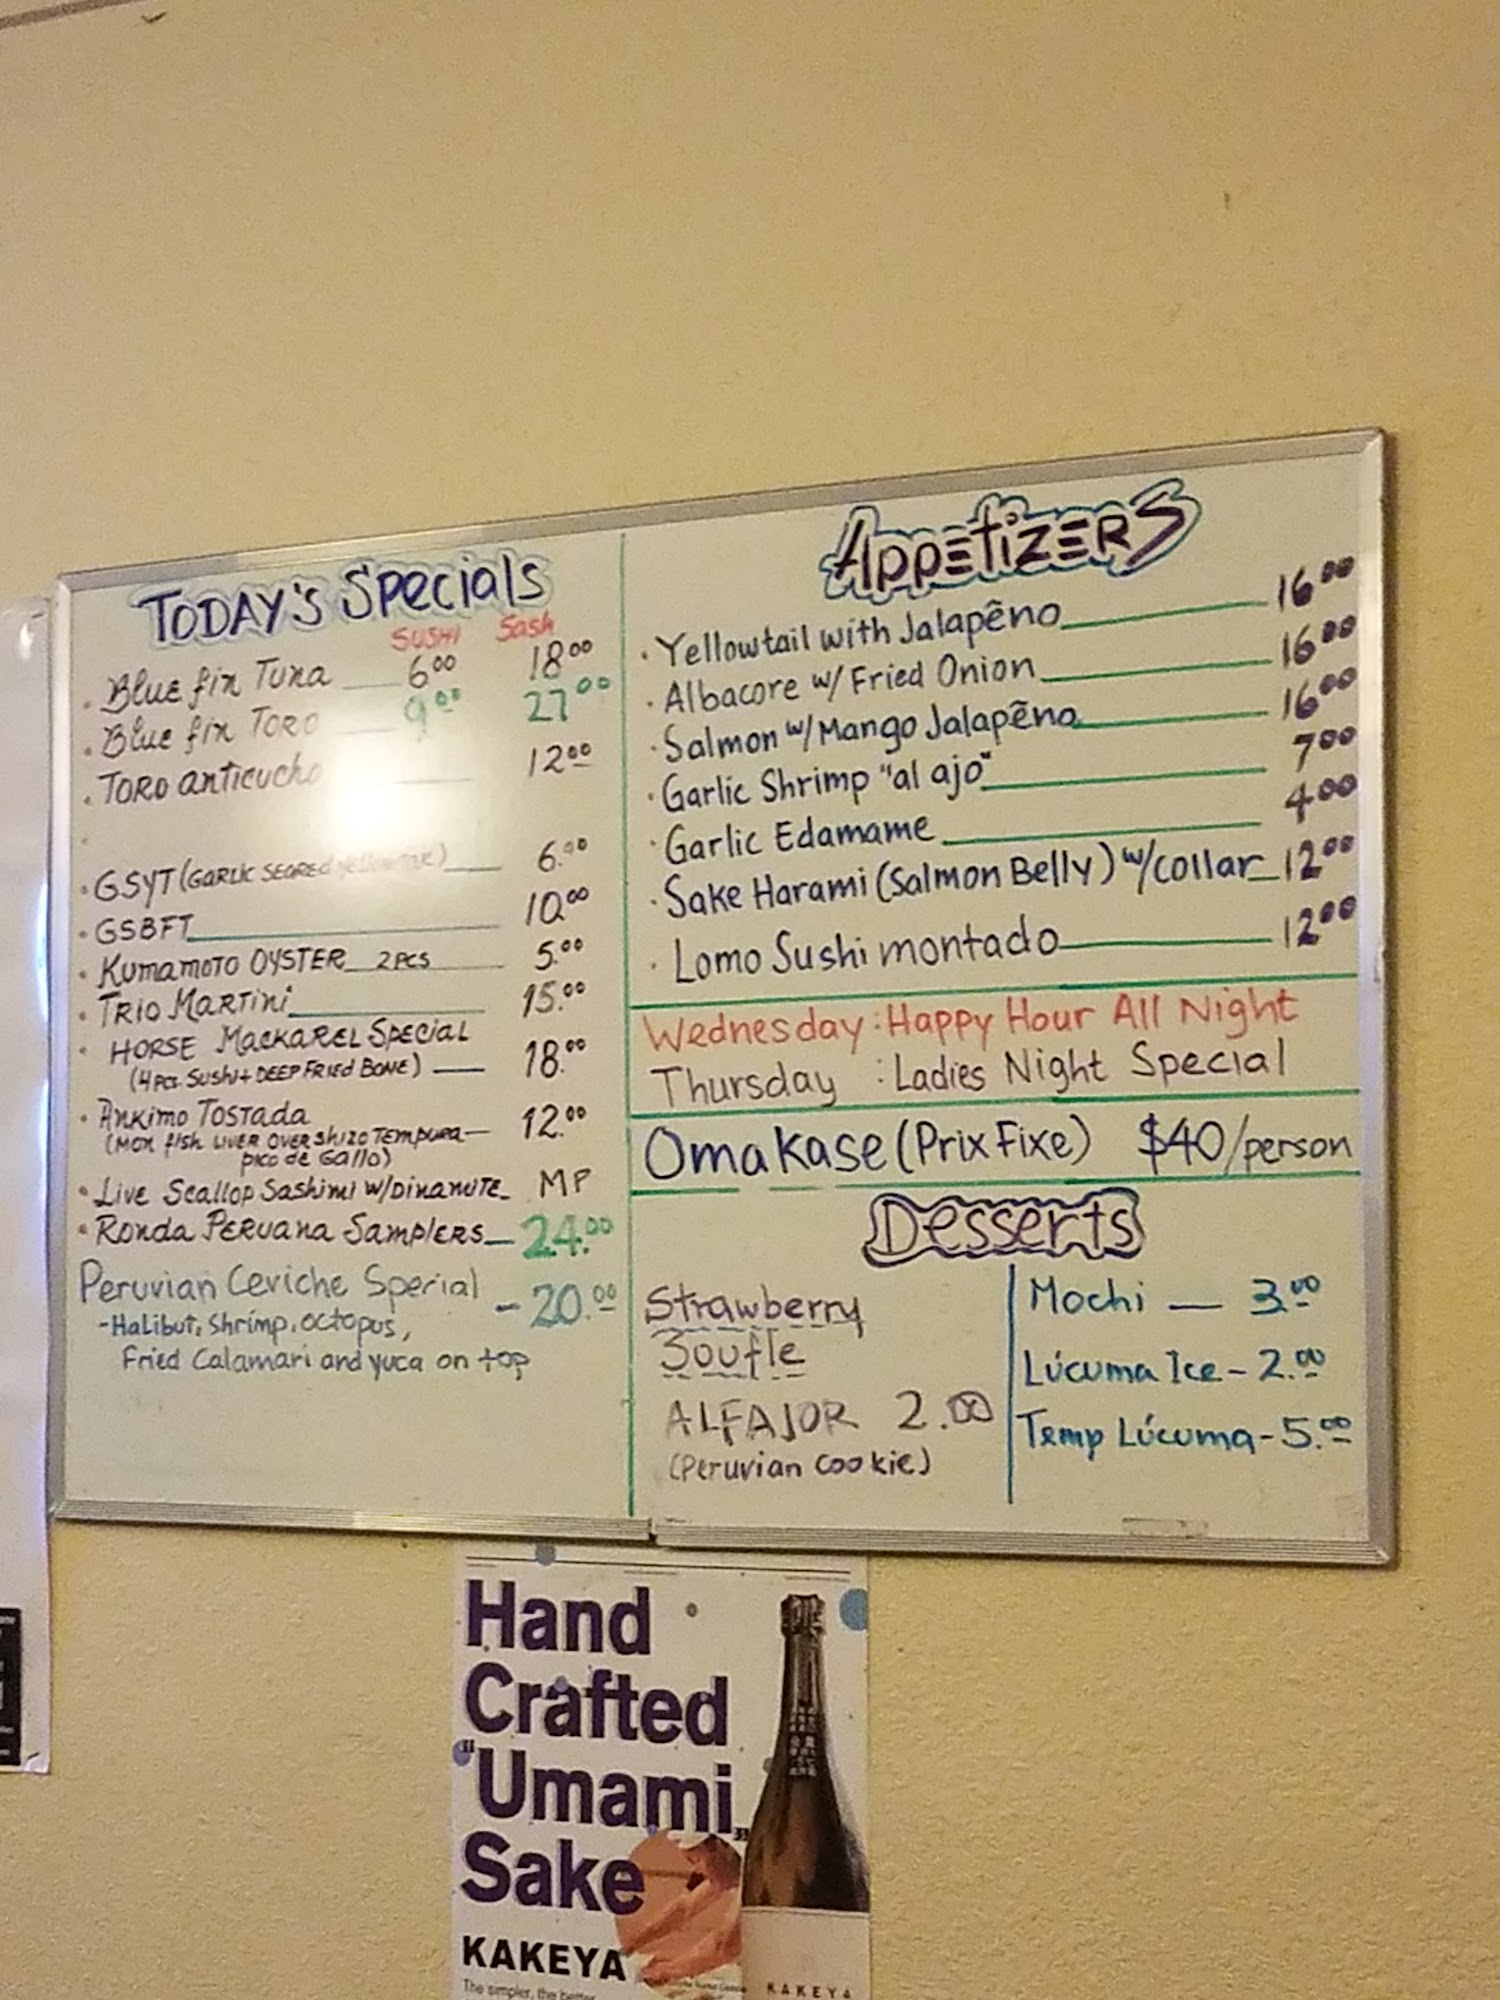 TODAY'S Specials
SUSHI Sash
. Blue fin Tuna 6.00 18.00
. Blue fin TORO 9.00 27.00
. TORO anticucho 12.00
. GSYT (GARLIC SEARED Yellowtail) 6.00
. GSBFT 10.00
. KUMAMOTO OYSTER 2 PCS 5.00
. TRIO MARTINI 15.00
. HORSE MACKAREL SPECIAL
(4 Pcs. SUSHI + DEEP FRIED BONE) 18.00
. ANKIMO TOSTADA 12.00
(MON fish LIVER OVER SHIZO TEMPURA
pico de GALLO)
. Live Scallop Sashimi w/DINAMITE MP
. RONDA PERUANA SAMPLERS 24.00
Peruvian Ceviche Special - 20.00
-Halibut, Shrimp, octopus,
Fried Calamari and yuca on top
Appetizers
. Yellowtail with Jalapêno 16.00
. Albacore w/ Fried Onion 16.00
. Salmon w/ Mango Jalapẽno 16.00
. Garlic Shrimp "al ajo" 7.00
. Garlic Edamame 4.00
. Sake Harami (Salmon Belly) w/collar 12.00
. Lomo Sushi montado 12.00
Wednesday : Happy Hour All Night
Thursday : Ladies Night Special
Omakase (Prix Fixe) $40/person
Desserts
Strawberry
Soufle
ALFAJOR 2.00
(Peruvian cookie)
Mochi — 3.00
Lúcuma Ice - 2.00
Temp Lúcuma - 5.00
Hand
Crafted
"Umami"
Sake
KAKEYA
The simpler, the better
KAKEYA